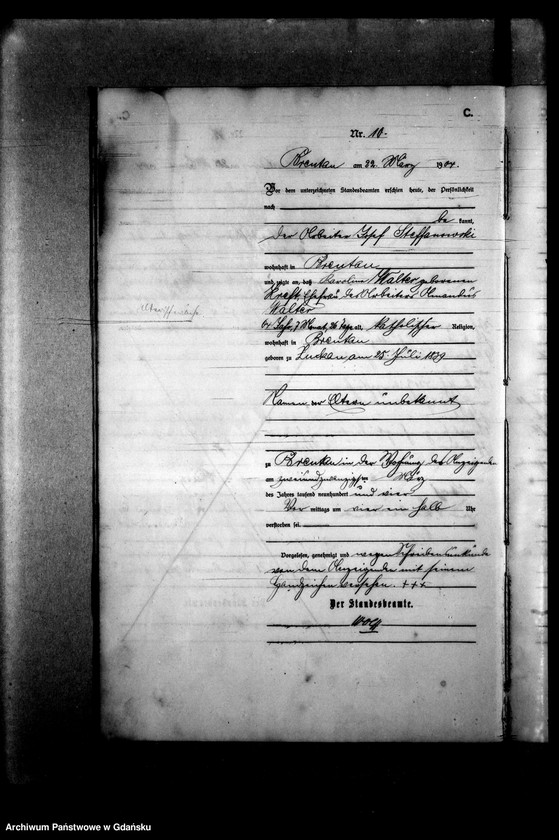 C.
Nr. 10.
Brentau am 22. März 1904.
Vor dem unterzeichneten Standesbeamten erschien heute, der Persönlichkeit
nach
be kannt,
der Arbeiter Josef Steffanowski
wohnhaft in Brentau
und zeigte an, daß Karoline Walter geborenen
Kreft, Ehefrau des Arbeiters Amandus
Walter
64 Jahr, 7 Monat, 26 Tage alt, katholischer Religion,
wohnhaft in Brentau
geboren zu Luckau, am 25. Juli 1839
Namen der Eltern unbekannt
zu Brentau in der Wohnung des Anzeigenden
am zweiundzwanzigsten März
des Jahres tausend neunhundert und vier
Vor mittags um vier ein halb Uhr
verstorben sei.
Vorgelesen, genehmigt und wegen Schreibensunkunde
von dem Anzeigenden mit seinem
Handzeichen versehen. +++
Der Standesbeamte.
Archiwum Państwowe w Gdańsku